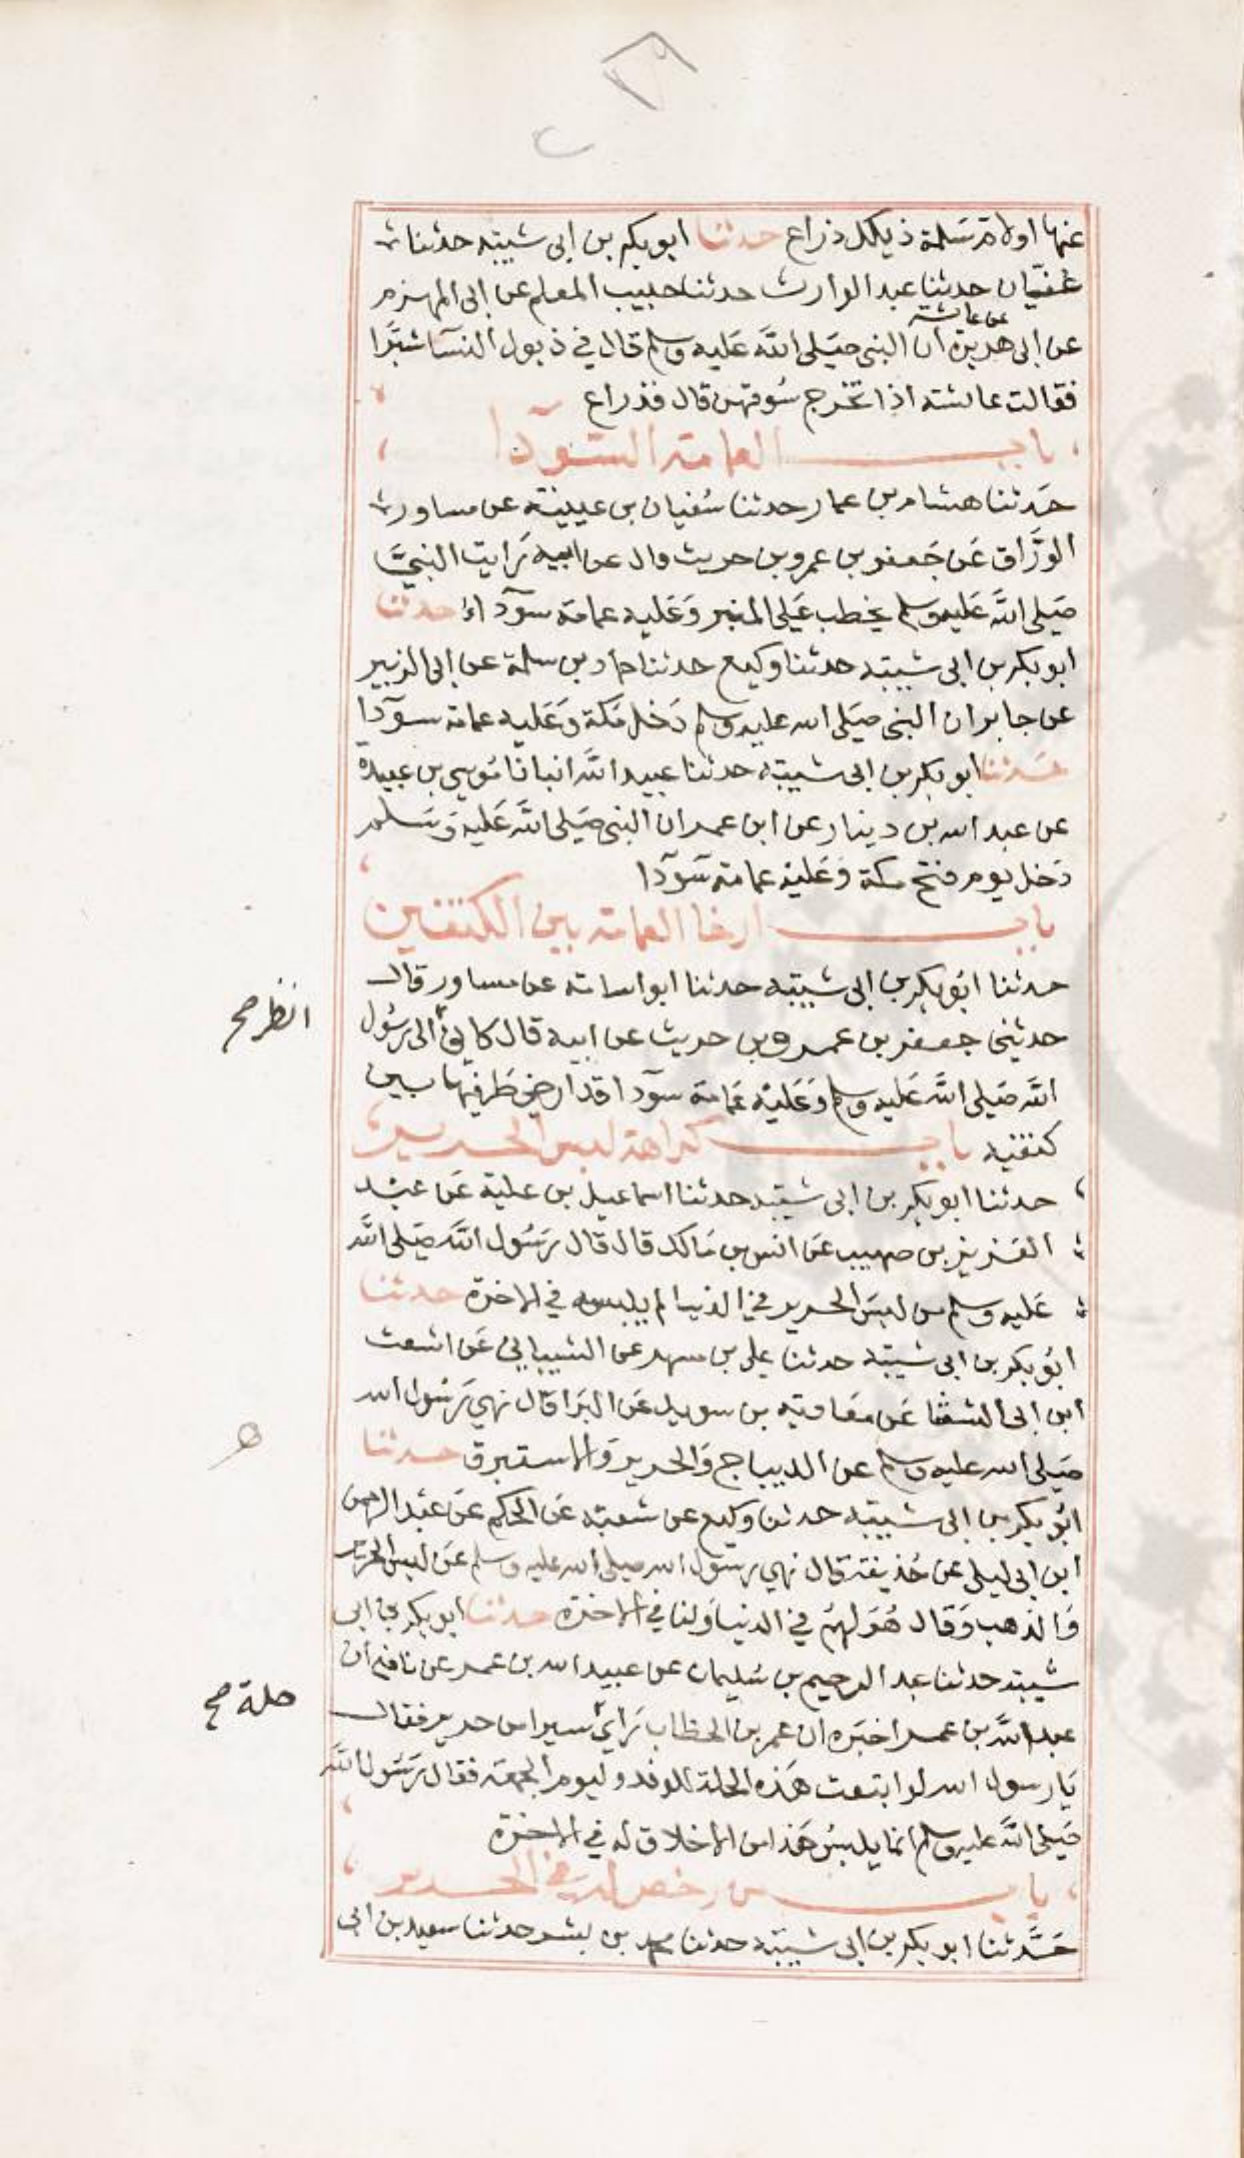 عنها اولام سلمة ذيلك ذراع حدثنا ابو بكر بن ابي شيبة حدثنا
عفان حدثنا عبد الوارث حدثنا حبيب المعلم عن ابي المهزم
عن عائشة
عن ابي هريرة ان النبي صلى الله عليه وسلم قال في ذيول النسا شبرا
فقالت عائشة اذا تخرج سوقهن قال فذراع
باب العمامة السوداء
حدثنا هشام بن عمار حدثنا سفيان بن عيينة عن مساور
الورّاق عن جعفر بن عمرو بن حريث قال عن ابيه رايت النبيّ
صلى الله عليه وسلم يخطب على المنبر وعليه عمامة سوداء حدثنا
ابو بكر بن ابي شيبة حدثنا وكيع حدثنا حماد بن سلمة عن ابي الزبير
عن جابر ان النبي صلى الله عليه وسلم دخل مكة وعليه عمامة سودا
حدثنا ابو بكر بن ابي شيبة حدثنا عبيد الله انبانا موسى بن عبيدة
عن عبد الله بن دينار عن ابن عمر ان النبي صلى الله عليه وسلم
دخل يوم فتح مكة وعليه عمامة سودا
باب ارخا العمامة بين الكتفين
حدثنا ابو بكر بن ابي شيبة حدثنا ابو اسامة عن مساور قال
حدثني جعفر بن عمرو بن حريث عن ابيه قال كاني الى رسول
انظر صح
الله صلى الله عليه وسلم وعليه عمامة سودا قد ارخى طرفيها بين
كتفيه باب كراهة لبس الحرير
حدثنا ابو بكر بن ابي شيبة حدثنا اسماعيل بن علية عن عبد
العزيز بن صهيب عن انس بن مالك قال قال رسول الله صلى الله
عليه وسلم من لبس الحرير في الدنيا لم يلبسه في الاخرة حدثنا
ابو بكر بن ابي شيبة حدثنا علي بن مسهر عن الشيباني عن اشعث
ابن ابي الشعثا عن معاوية بن سويد عن البرا قال نهى رسول الله
صلى الله عليه وسلم عن الديباج والحرير والاستبرق حدثنا
ابو بكر بن ابي شيبة حدثنا وكيع عن شعبة عن الحكم عن عبد الرحمن
ابن ابي ليلى عن حذيفة قال نهى رسول الله صلى الله عليه وسلم عن لبس الحرير
والذهب وقال هو لهم في الدنيا ولنا في الاخرة حدثنا ابو بكر بن ابي
شيبة حدثنا عبد الرحيم بن سليمان عن عبيد الله بن عمر عن نافع ان
عبد الله بن عمر اخبره ان عمر بن الخطاب راى سيرا من حرير فقال
حلة صح
يا رسول الله لو ابتعت هذه الحلة للوفد وليوم الجمعة فقال رسول الله
صلى الله عليه وسلم انما يلبس هذا من لا خلاق له في الاخرة
باب من رخص له في الحرير
حدّثنا ابو بكر بن ابي شيبة حدثنا محمد بن بشر حدثنا سعيد بن ابي